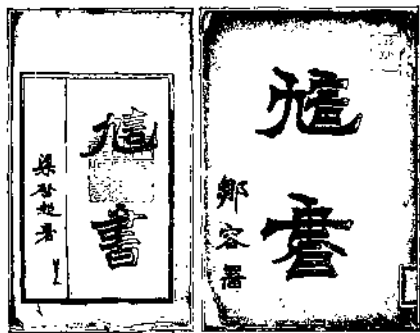 訄書
梁啓超署
訄書
鄒容